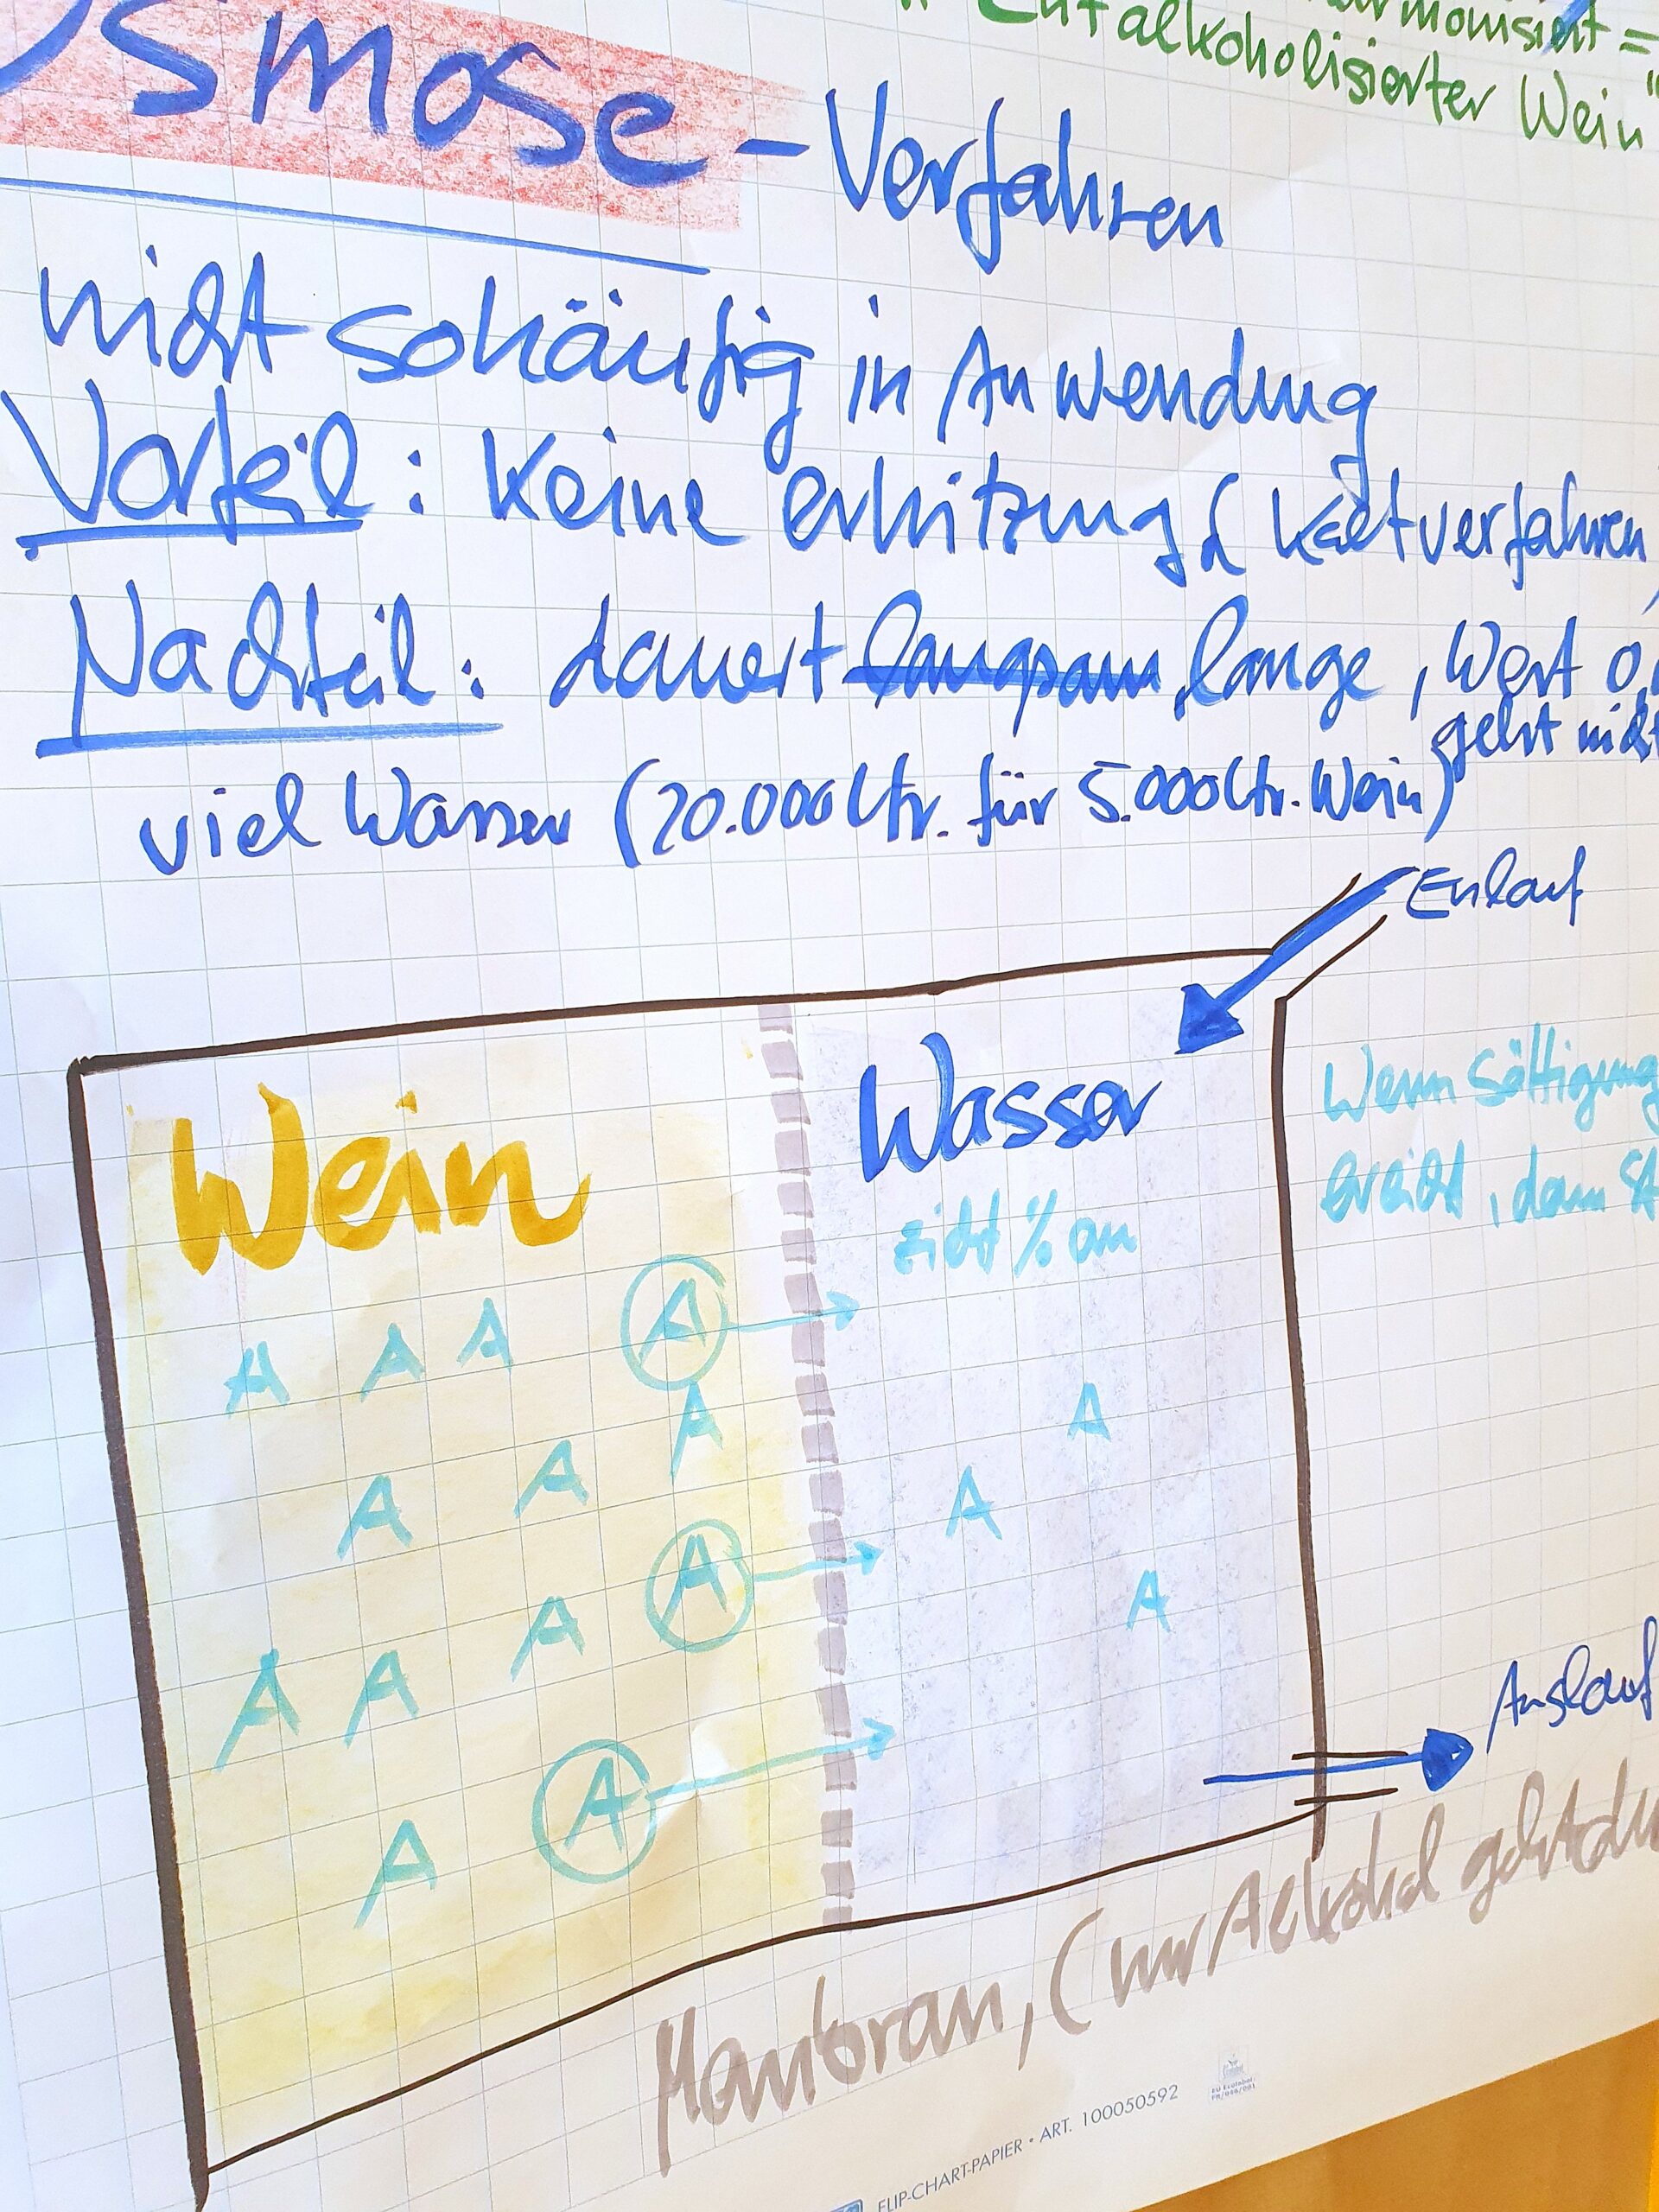 armonisiert =
" Entalkoholisierter Wein "
Osmose - Verfahren
nicht so häufig in Anwendung
Vorteil : Keine erhitzung & Kaltverfahren,
Nachteil : dauert langsam lange, Wert 0,
geht nicht
viel Wasser (20.000 Ltr. für 5.000 Ltr. Wein)
Einlauf
Wein
Wasser
zieht % an
Wenn Sättigung
ereicht, dann
A A A A
A
A A
A
A
A
A A A
A
A A
A
Auslauf
Membran, (nur Alkohol geht du
FLIP-CHART-PAPIER • ART. 100050592
EU Ecolabel: